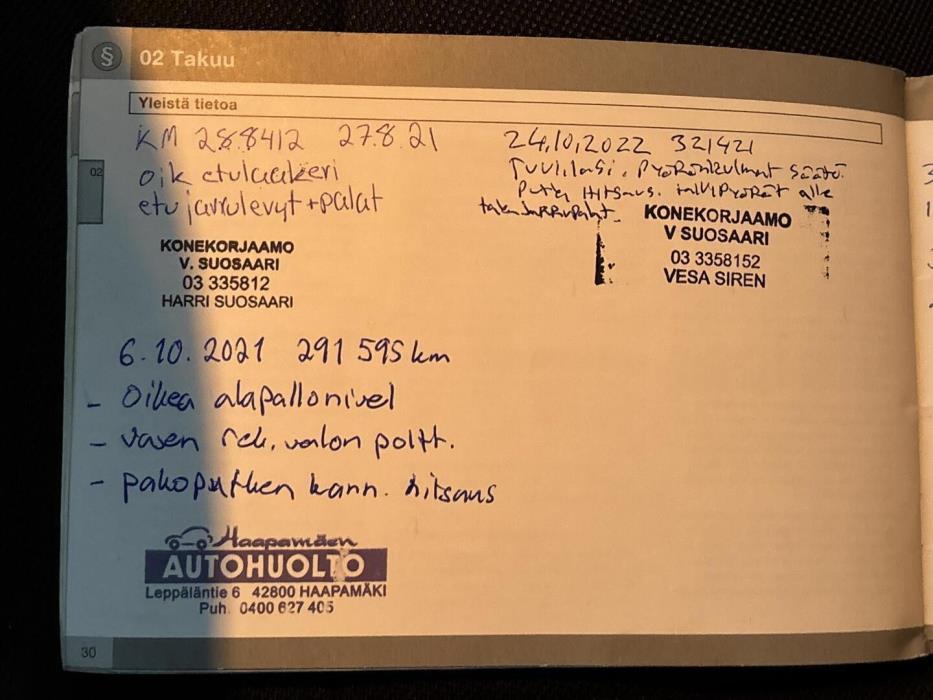 § 02 Takuu
Yleistä tietoa
KM 288412 27.8.21
oik etulaakeri
etujarrulevyt + palat
KONEKORJAAMO
V. SUOSAARI
03 335812
HARRI SUOSAARI
6.10.2021 291 595 km
- Oikea alapallonivel
- vasen rek. valon poltt.
- pakoputken kann. hitsaus
Haapamäen
AUTOHUOLTO
Leppäläntie 6 42800 HAAPAMÄKI
Puh. 0400 627 405
24.10.2022 321421
Tuulilasi. Pyöränkulmat säätö.
Putki Hitsaus. talvipyörät alle
taka Jarrupalat
KONEKORJAAMO
V SUOSAARI
03 3358152
VESA SIREN
02
30